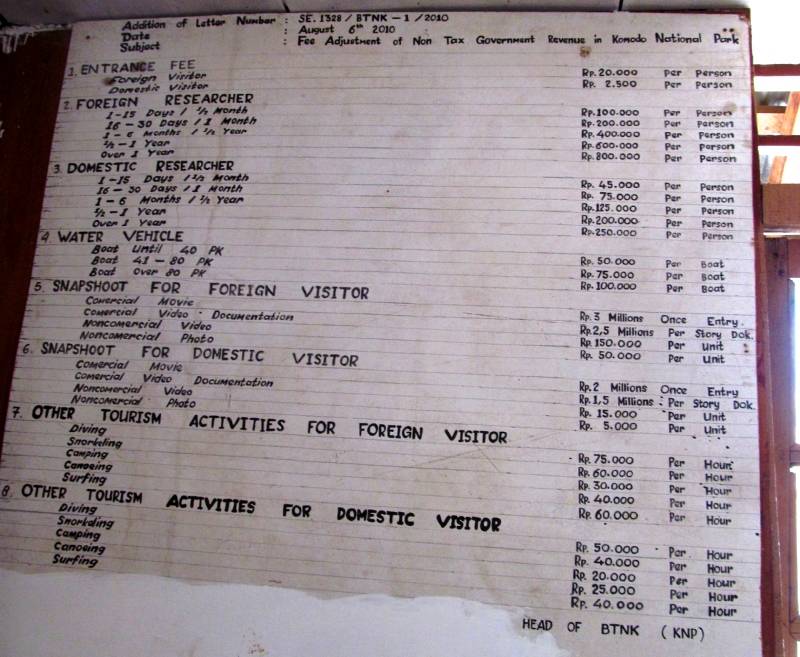 Addition of Letter Number : SE. 1328 / BTNK - 1 / 2010
Date : August 6th 2010
Subject : Fee Adjustment of Non Tax Government Revenue in Komodo National Park
1. ENTRANCE FEE
Foreign Visitor Rp. 20.000 Per Person
Domestic Visitor Rp. 2.500 Per Person
2. FOREIGN RESEARCHER
1 - 15 Days / 1/2 Month Rp. 100.000 Per Person
16 - 30 Days / 1 Month Rp. 200.000 Per Person
1 - 6 Months / 1/2 Year Rp. 400.000 Per Person
1/2 - 1 Year Rp. 600.000 Per Person
Over 1 Year Rp. 800.000 Per Person
3. DOMESTIC RESEARCHER
1 - 15 Days / 1/2 Month Rp. 45.000 Per Person
16 - 30 Days / 1 Month Rp. 75.000 Per Person
1 - 6 Months / 1/2 Year Rp. 125.000 Per Person
1/2 - 1 Year Rp. 200.000 Per Person
Over 1 Year Rp. 250.000 Per Person
4. WATER VEHICLE
Boat Until 40 PK Rp. 50.000 Per Boat
Boat 41 - 80 PK Rp. 75.000 Per Boat
Boat Over 80 PK Rp. 100.000 Per Boat
5. SNAPSHOOT FOR FOREIGN VISITOR
Comercial Movie Rp. 3 Millions Once Entry.
Comercial Video Documentation Rp. 2,5 Millions Per Story Dok.
Noncomercial Video Rp. 150.000 Per Unit
Noncomercial Photo Rp. 50.000 Per Unit
6. SNAPSHOOT FOR DOMESTIC VISITOR
Comercial Movie Rp. 2 Millions Once Entry
Comercial Video Documentation Rp. 1,5 Millions Per Story Dok.
Noncomercial Video Rp. 15.000 Per Unit
Noncomercial Photo Rp. 5.000 Per Unit
7. OTHER TOURISM ACTIVITIES FOR FOREIGN VISITOR
Diving Rp. 75.000 Per Hour
Snorkeling Rp. 60.000 Per Hour
Camping Rp. 30.000 Per Hour
Canoeing Rp. 40.000 Per Hour
Surfing Rp. 60.000 Per Hour
8. OTHER TOURISM ACTIVITIES FOR DOMESTIC VISITOR
Diving Rp. 50.000 Per Hour
Snorkeling Rp. 40.000 Per Hour
Camping Rp. 20.000 Per Hour
Canoeing Rp. 25.000 Per Hour
Surfing Rp. 40.000 Per Hour
HEAD OF BTNK (KNP)